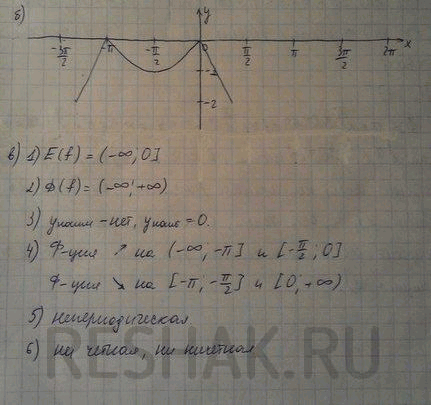 б)
y
-3π/2 -π -π/2 0 π/2 π 3π/2 2π x
-1
-2
в) 1) E(f) = (-∞; 0]
2) D(f) = (-∞; +∞)
3) yнаим - нет, yнаиб = 0.
4) Ф-ция ↗ на (-∞, -π] и [-π/2; 0]
Ф-ция ↘ на [-π; -π/2] и [0; +∞)
5) непериодическая
6) ни четная, ни нечетная
RESHAK.RU